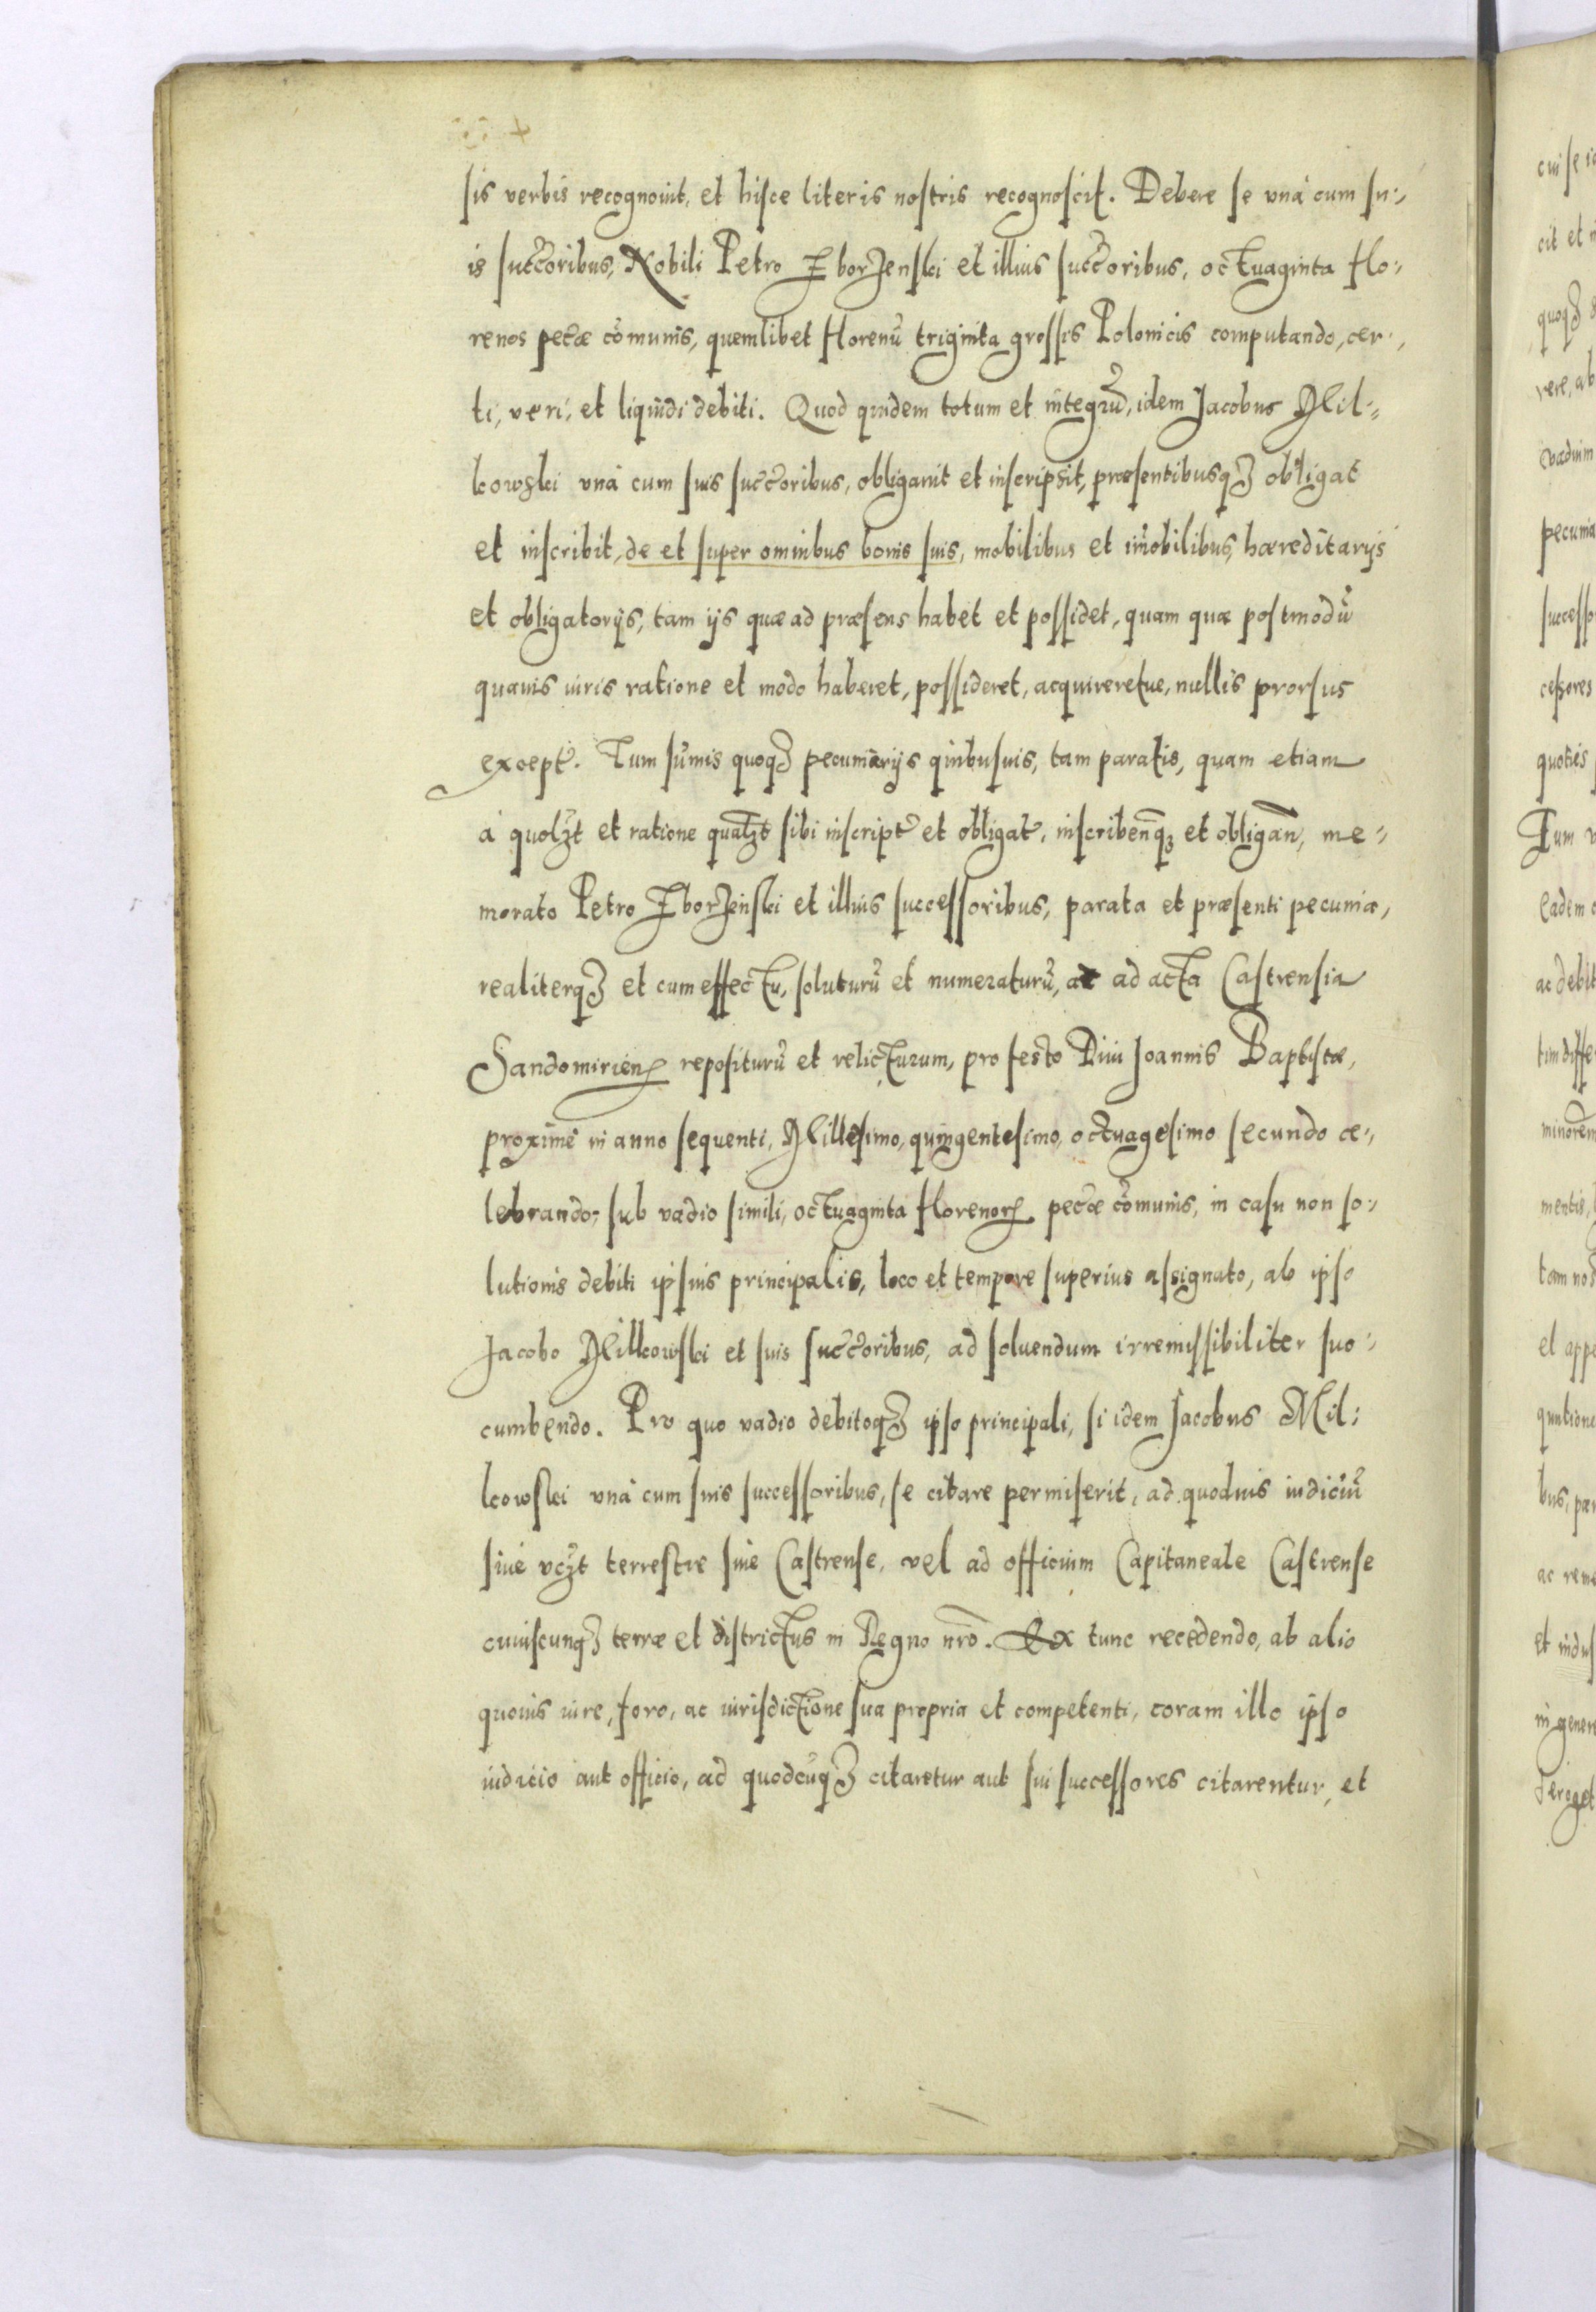 sis verbis recognouit, et hisce literis nostris recognoscit. Debere se vnà cum su:,
is succ͠oribus, Nobili Petro Zborzenski et illius succ͠oribus, octuaginta flo:,
renos pec̃æ com̃unis, quemlibet florenũ triginta grossis Polonicis computando, cer:,
ti, veri, et liquidi debiti. Quod quidem totum et integrũ, idem Jacobus Mil:,
kowski vnà cum suis succ͠oribus, obligauit et inscripsit, præsentibusqȝ obligat
et inscribit, de et super omnibus bonis suis, mobilibus et im̃obilibus, hæreditarijs
et obligatorijs, tam ijs quæ ad præsens habet et possidet, quam quæ postmodũ
quauis iuris ratione et modo haberet, possideret, acquireretue, nullis prorsus
except̃. Tum sum̃is quoqȝ pecuniarijs quibusuis, tam paratis, quam etiam
à quolȝt et ratione qualȝt sibi inscript̃ et obligat̃, inscribenq̃ȝ et obligañ, me:,
morato Petro Zborzenski et illius successoribus, parata et præsenti pecunia,
realiterqȝ et cum effectu, soluturũ et numeraturũ, ac ad acta Castrensia
Sandomirieñ repositurũ et relicturum, pro festo Diui Joannis Baptistæ,
proximè in anno sequenti, Millesimo, quingentesimo, octuagesimo secundo ce:,
lebrando, sub vadio simili, octuaginta florenorꝝ pec̃æ com̃unis, in casu non so:,
lutionis debiti ipsius principalis, loco et tempore superius assignato, ab ipso
Jacobo Milkowski et suis succ͠oribus, ad soluendum irremissibiliter suc:,
cumbendo. Pro quo vadio debitoqȝ ipso principali, si idem Jacobus Mil:
kowski vnà cum suis successoribus, se citare permiserit, ad quoduis iudiciũ
siue vcȝt terrestre siue Castrense, vel ad officium Capitaneale Castrense
cuiuscunqȝ terræ et districtus in Regno nr̃o. Ex tunc recedendo, ab alio
quouis iure, foro, ac iurisdictione sua propria et competenti, coram illo ipso
iudicio aut officio, ad quodcũqȝ citaretur aut sui successores citarentur, et